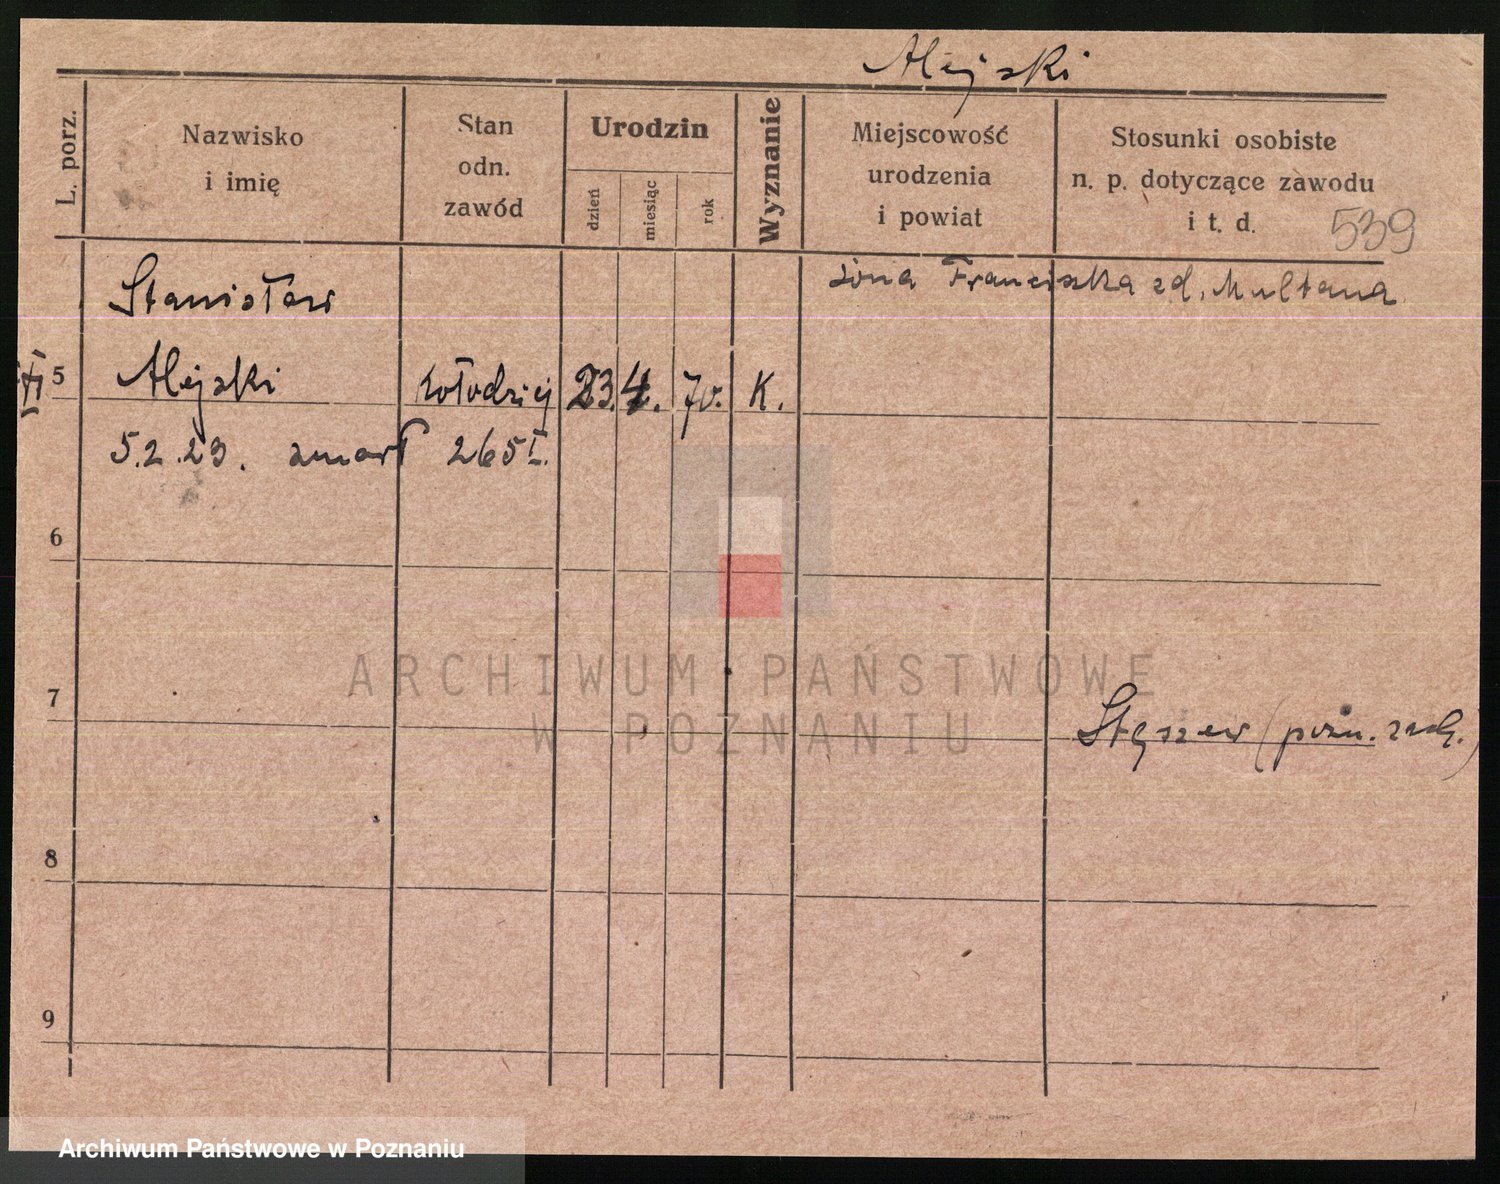 Alejski
L. porz.
Nazwisko
i imię
Stan
odn.
zawód
Urodzin
dzień
miesiąc
rok
Wyznanie
Miejscowość
urodzenia
i powiat
Stosunki osobiste
n. p. dotyczące zawodu
i t. d.
539
żona Franciszka zd. Multana
Stanisław
5 Alejski kołodziej 23. 4. 70. K.
5.2.23. zmarł 265 I.
6
7
Stęszew (pozn. zach.)
8
9
ARCHIWUM PAŃSTWOWE
W POZNANIU
Archiwum Państwowe w Poznaniu